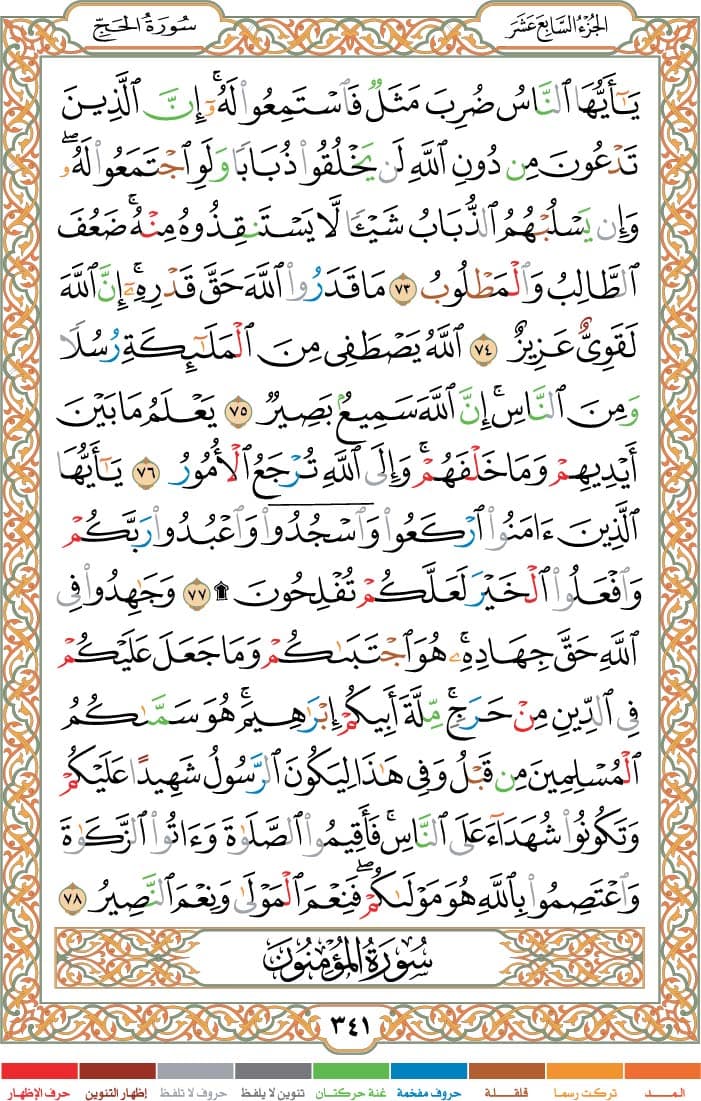 الجزء السابع عشر
سورة الحج
يَٰٓأَيُّهَا ٱلنَّاسُ ضُرِبَ مَثَلٌ فَٱسْتَمِعُوا۟ لَهُۥٓ ۚ إِنَّ ٱلَّذِينَ
تَدْعُونَ مِن دُونِ ٱللَّهِ لَن يَخْلُقُوا۟ ذُبَابًا وَلَوِ ٱجْتَمَعُوا۟ لَهُۥ ۖ
وَإِن يَسْلُبْهُمُ ٱلذُّبَابُ شَيْـًٔا لَّا يَسْتَنقِذُوهُ مِنْهُ ۚ ضَعُفَ
ٱلطَّالِبُ وَٱلْمَطْلُوبُ ٧٣ مَا قَدَرُوا۟ ٱللَّهَ حَقَّ قَدْرِهِۦٓ ۚ إِنَّ ٱللَّهَ
لَقَوِىٌّ عَزِيزٌ ٧٤ ٱللَّهُ يَصْطَفِى مِنَ ٱلْمَلَٰٓئِكَةِ رُسُلًا
وَمِنَ ٱلنَّاسِ ۚ إِنَّ ٱللَّهَ سَمِيعٌۢ بَصِيرٌ ٧٥ يَعْلَمُ مَا بَيْنَ
أَيْدِيهِمْ وَمَا خَلْفَهُمْ ۗ وَإِلَى ٱللَّهِ تُرْجَعُ ٱلْأُمُورُ ٧٦ يَٰٓأَيُّهَا
ٱلَّذِينَ ءَامَنُوا۟ ٱرْكَعُوا۟ وَٱسْجُدُوا۟ وَٱعْبُدُوا۟ رَبَّكُمْ
وَٱفْعَلُوا۟ ٱلْخَيْرَ لَعَلَّكُمْ تُفْلِحُونَ ۩ ٧٧ وَجَٰهِدُوا۟ فِى
ٱللَّهِ حَقَّ جِهَادِهِۦ ۚ هُوَ ٱجْتَبَىٰكُمْ وَمَا جَعَلَ عَلَيْكُمْ
فِى ٱلدِّينِ مِنْ حَرَجٍ ۚ مِّلَّةَ أَبِيكُمْ إِبْرَٰهِيمَ ۚ هُوَ سَمَّىٰكُمُ
ٱلْمُسْلِمِينَ مِن قَبْلُ وَفِى هَٰذَا لِيَكُونَ ٱلرَّسُولُ شَهِيدًا عَلَيْكُمْ
وَتَكُونُوا۟ شُهَدَآءَ عَلَى ٱلنَّاسِ ۚ فَأَقِيمُوا۟ ٱلصَّلَوٰةَ وَءَاتُوا۟ ٱلزَّكَوٰةَ
وَٱعْتَصِمُوا۟ بِٱللَّهِ هُوَ مَوْلَىٰكُمْ ۖ فَنِعْمَ ٱلْمَوْلَىٰ وَنِعْمَ ٱلنَّصِيرُ ٧٨
سُورَةُ المُؤْمِنُونَ
٣٤١
المـــد تركت رسما قلقـلة حروف مفخمة غنة حركتان تنوين لا يلفظ حروف لا تلفظ إظهار التنوين حرف الإظهار